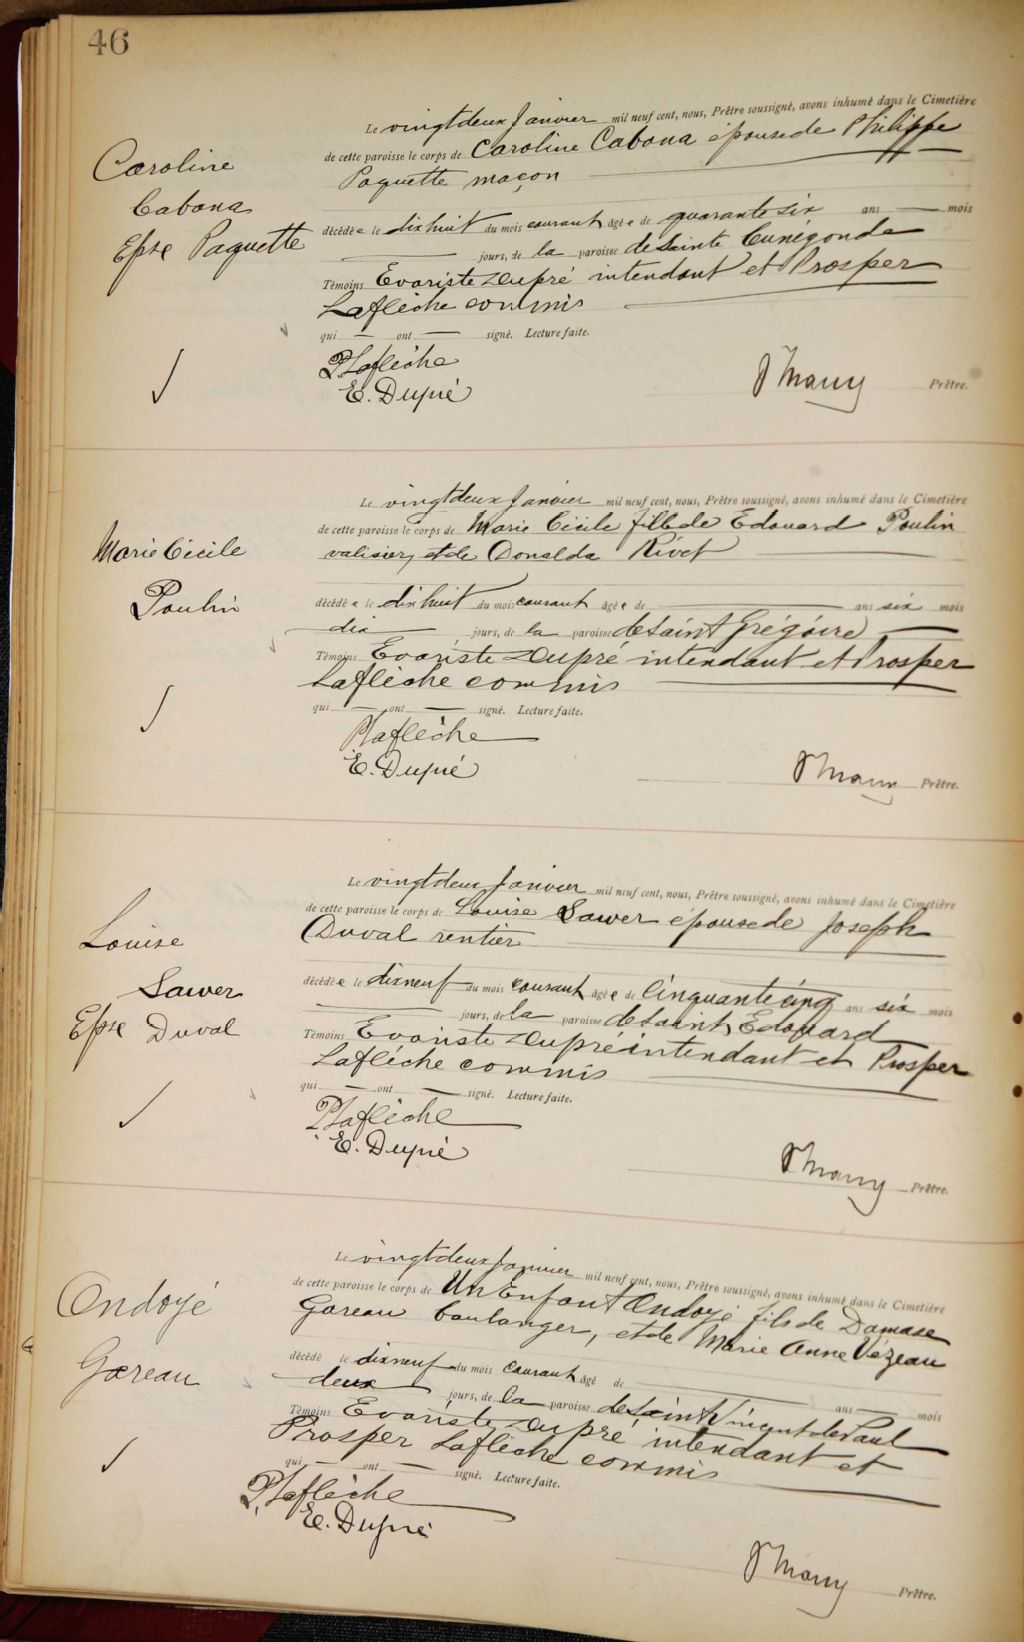 46
Le vingt deux Janvier mil neuf cent, nous, Prêtre soussigné, avons inhumé dans le Cimetière
de cette paroisse le corps de Caroline Cabana épouse de Philippe
Paquette maçon
Caroline
Cabana
Epse Paquette
décédée le dix huit du mois courant âgée de quarante six ans — mois
— jours, de la paroisse de Sainte Cunégonde
Témoins Evariste Dupré intendant et Prosper
Laflèche commis
qui — ont — signé. Lecture faite.
P. Laflèche
E. Dupré
Prêtre.
Le vingt deux Janvier mil neuf cent, nous, Prêtre soussigné, avons inhumé dans le Cimetière
de cette paroisse le corps de Marie Cécile fille de Edouard Poulin
valisier, et de Donalda Rivet
Marie Cécile
Poulin
décédée le dix huit du mois courant âgée de — ans six mois
dix jours, de la paroisse de Saint Grégoire
Témoins Evariste Dupré intendant et Prosper
Laflèche commis
qui — ont — signé. Lecture faite.
P. Laflèche
E. Dupré
Prêtre.
Le vingt deux Janvier mil neuf cent, nous, Prêtre soussigné, avons inhumé dans le Cimetière
de cette paroisse le corps de Louise Sawer épouse de Joseph
Duval rentier
Louise
Sawer
Epse Duval
décédée le dix neuf du mois courant âgée de cinquante cinq ans six mois
— jours, de la paroisse de Saint Edouard
Témoins Evariste Dupré intendant et Prosper
Laflèche commis
qui — ont — signé. Lecture faite.
P. Laflèche
E. Dupré
Prêtre.
Le vingt deux Janvier mil neuf cent, nous, Prêtre soussigné, avons inhumé dans le Cimetière
de cette paroisse le corps de Un Enfant Ondoyé fils de Damase
Gareau boulanger, et de Marie Anne Vézeau
Ondoyé
Gareau
décédé le dix neuf du mois courant âgé de — ans — mois
deux jours, de la paroisse de Saint Vincent de Paul
Témoins Evariste Dupré intendant et
Prosper Laflèche commis
qui — ont — signé. Lecture faite.
P. Laflèche
E. Dupré
Prêtre.